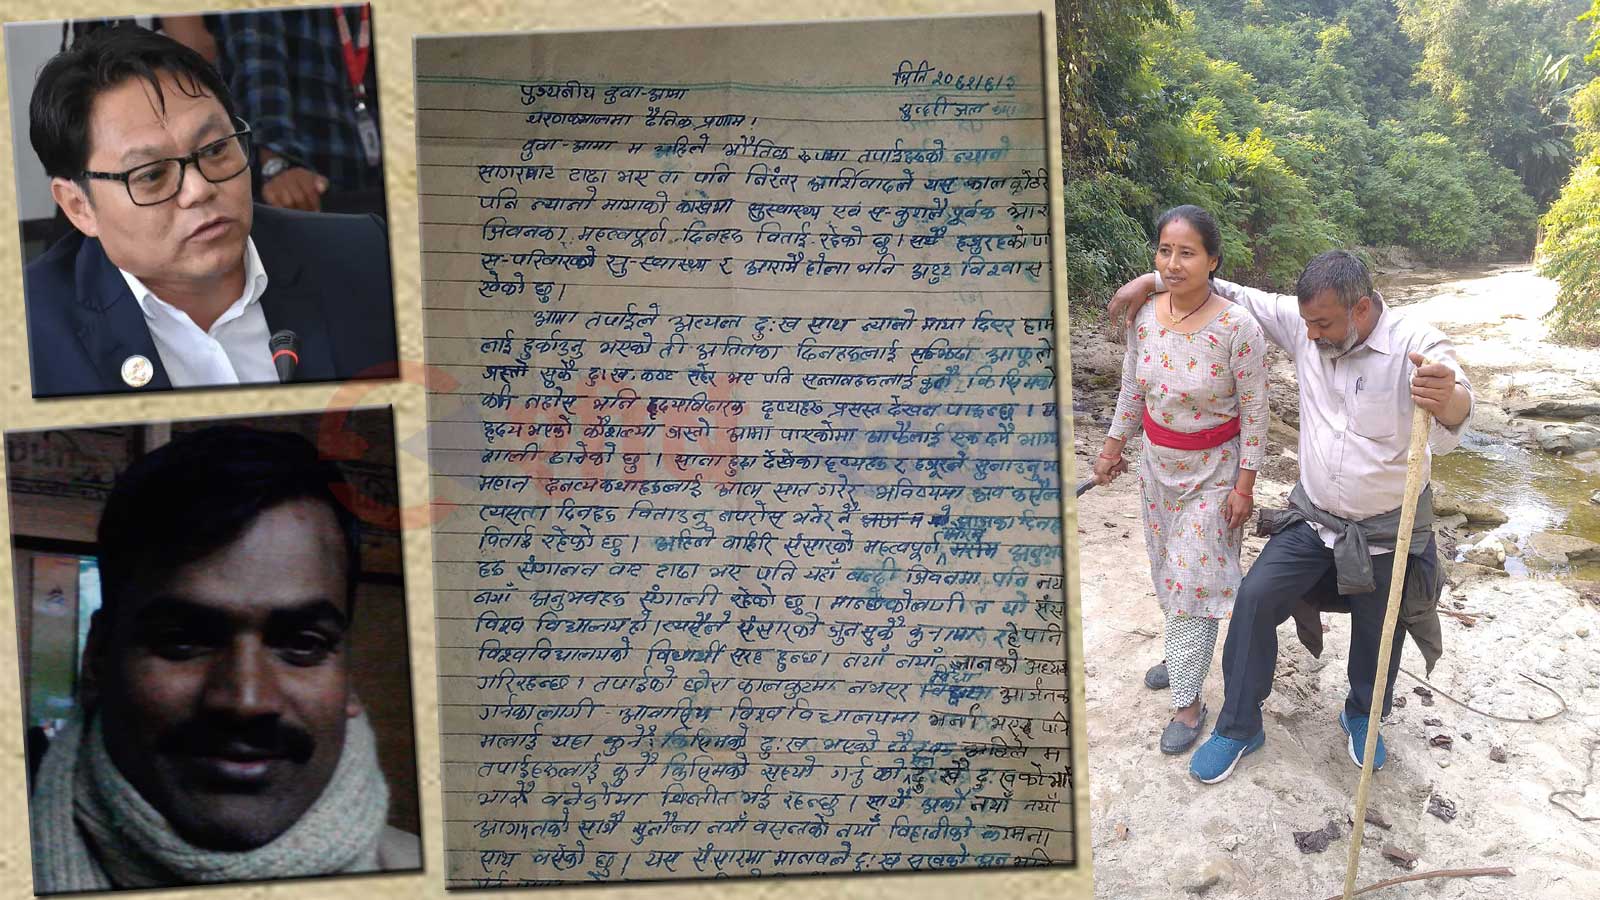 मिति २०६२।६।२
पुज्यनीय बुवा-आमा
सुन्दरी जल
चरणकमलमा दैनिक प्रणाम ।
बुवा-आमा म अहिले भौतिक रुपमा तपाईहरुको न्यानो
सागरबाट टाढा भए ता पनि निरंतर आर्शिवादले यस काल कोठरी
पनि न्यानो मायाको काखमा सुस्वास्थ्य एवं स-कुशलै पूर्वक
जिवनका महत्वपूर्ण दिनहरु विताई रहेको छु । साथै हजुरहरुको
स-परिवारको सु-स्वास्थ्य र आरामै होला भनि अटुट विश्वास
रहेको छु ।
आमा तपाईले अत्यन्त दुःख साथ न्यानो माया दिएर
लाई हुर्काउनु भएको ती अतितका दिनहरुलाई सम्झिदा आफूले
जस्तो सुकै दुःख, कष्ट सहेर भए पनि सन्तानहरुलाई कुनै किसिमको
कमि नहोस् भनि हृदयविदारक दृष्यहरु प्रसस्त देखन पाइन्छु ।
हृदय भएको कौशल्या जस्तो आमा पाएकोमा आफैलाई एक दमै
शाली ठानेको छु । सानो हुदा देखेका दृष्यहरु र हजुरले सुनाउनु
महान दन्त्यकथाहरुलाई आत्म सात गरेर भविष्यमा अब कसैले
त्यस्ता दिनहरु विताउनु नपरोस् भनेर नै आजका दिनहरु
विताई रहेको छु । अहिले बाहिरि संसारको महत्वपूर्ण
हरु संगालन बाट टाढा भए पनि यहाँ बन्दी जिवनमा पनि
नयाँ अनुभवहरु संगाली रहेको छु । मान्छेको लागी त यो
विश्व विद्यालय हो । त्यसैले संसारको जुनसुकै कुनामा रहे पनि
विश्वविद्यालयको विद्यार्थी सरह हुन्छ । नयाँ नयाँ ज्ञानको
गरिरहन्छ । तपाईको छोरा विद्या
गर्नका लागी आवासिय विश्वविद्यालयमा भर्ना
मलाई यहा कुनै किसिमको दुःख भएको छैन अहिले म
तपाईहरुलाई कुनै किसिमको सहयोग गर्नु को दुःखै दुःखको
भारी बनेकोमा चिन्तीत भई रहन्छु । साथै अर्को नयाँ नयाँ
आगमनको साथै सुनौला नयाँ वसन्तको नयाँ विहानीको कामना
साथ बसेको छु । यस संसारमा मानवले दुःख सुखको